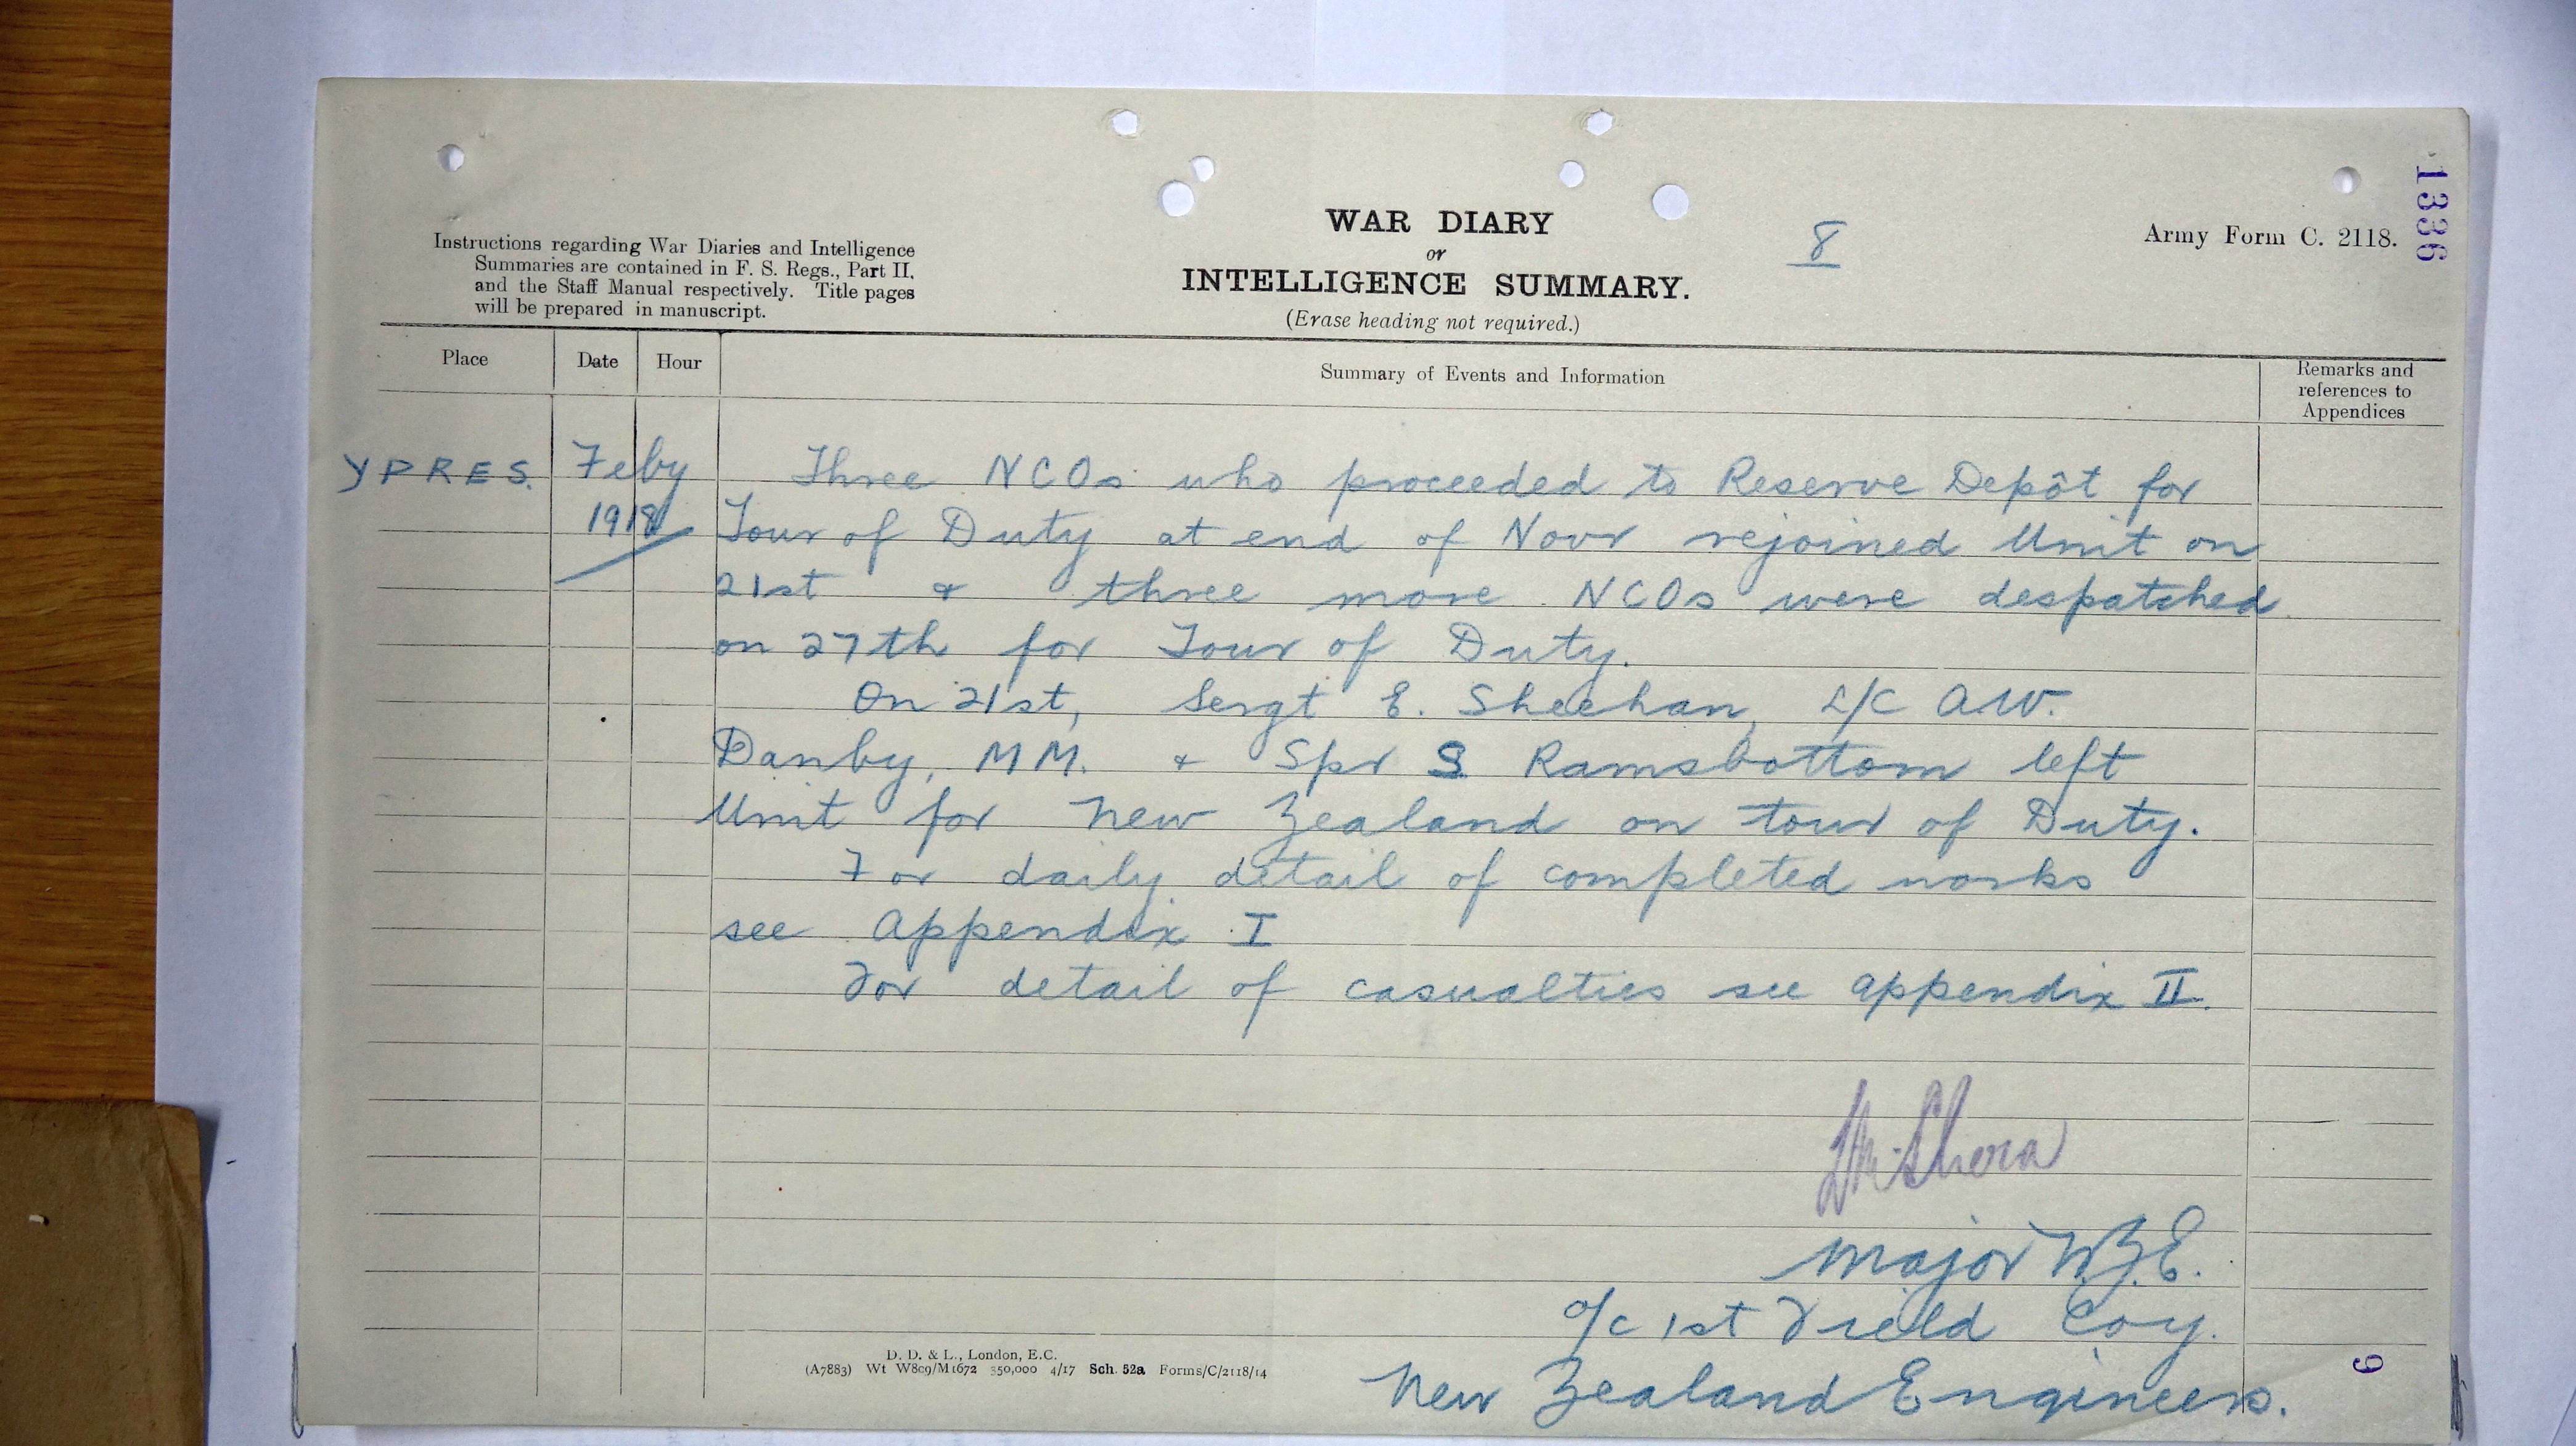 1336
Army Form C. 2118.
8
WAR DIARY
or
INTELLIGENCE SUMMARY.
(Erase heading not required.)
Instructions regarding War Diaries and Intelligence
Summaries are contained in F. S. Regs., Part II,
and the Staff Manual respectively. Title pages
will be prepared in manuscript.
Place Date Hour Summary of Events and Information Remarks and
references to
Appendices
YPRES. Feby
1918
Three NCOs who proceeded to Reserve Depôt for
Tour of Duty at end of Novr rejoined Unit on
21st & three more NCOs were despatched
on 27th for Tour of Duty.
On 21st, Sergt E. Sheehan, L/C A.W.
Danby, MM. & Spr S Ramsbottom left
Unit for New Zealand on tour of Duty.
For daily detail of completed works
see Appendix I
For detail of casualties see appendix II.
Shera
Major N.Z.E.
o/c 1st Field Coy.
New Zealand Engineers.
D. D. & L., London, E.C.
(A7883) Wt W809/M1672 350,000 4/17 Sch. 52a Forms/C/2118/14
9